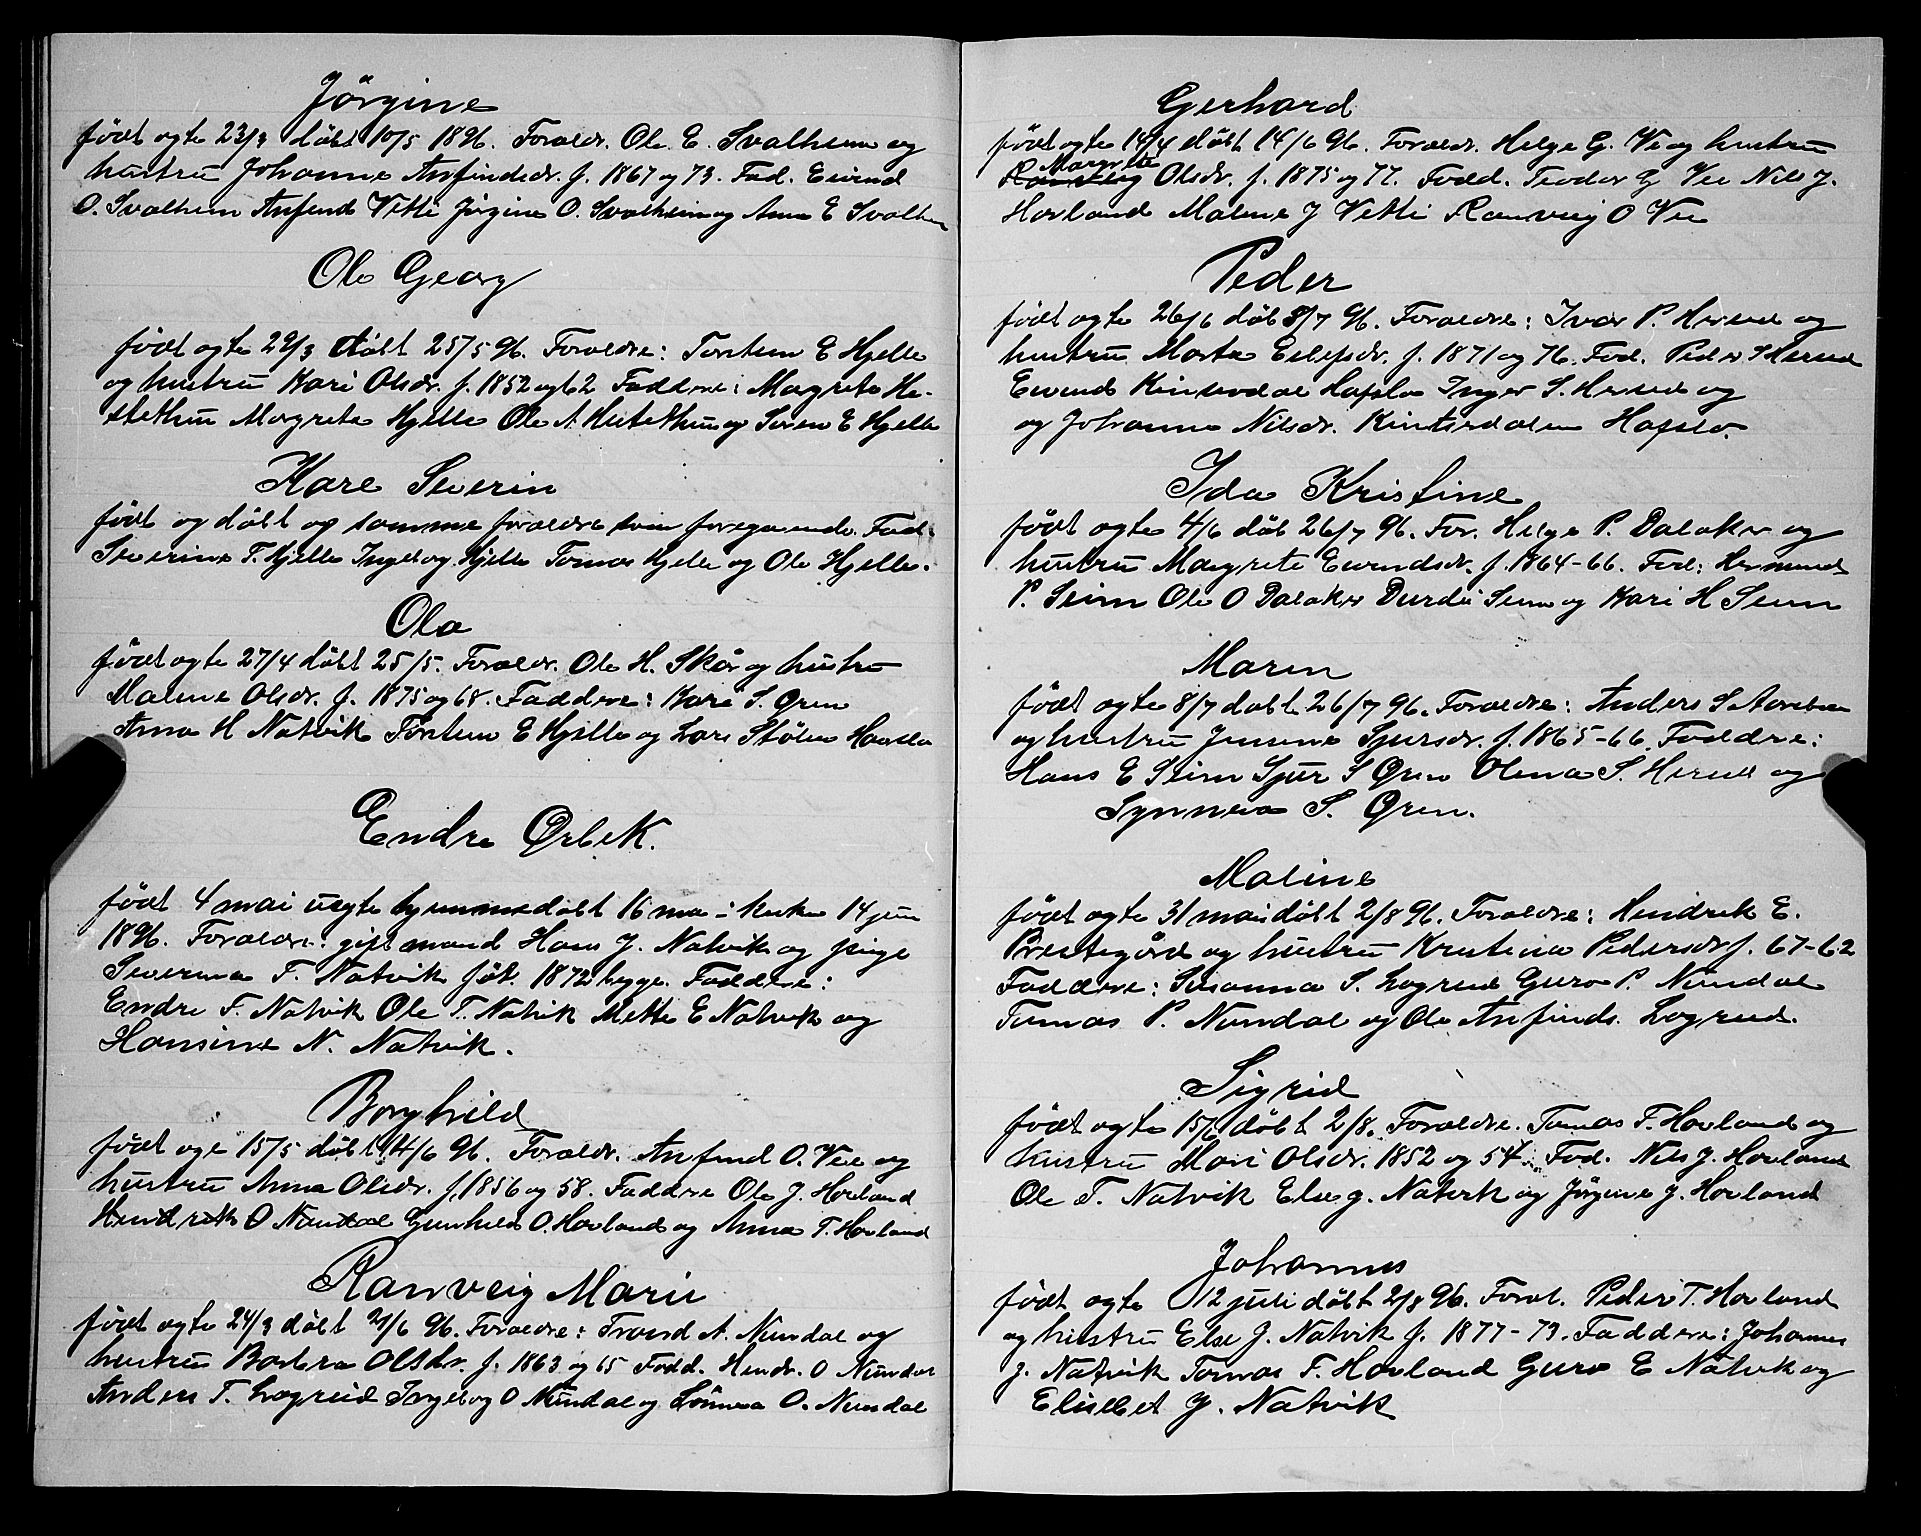 Jörgine
födt egte 23/3 döbt 10/5 1896. Foreldr. Ole E. Svalheim og
hustru Johanne Anfindsdr. f. 1867 og 73. Fad. Eivind
O. Svalheim Anfind Vetti Jörgine O. Svalheim og Anna E Svalheim
Ole Georg
födt egte 29/3 döbt 25/5 96. Foreldre: Torstein E Hjelle
og hustru Kari Olsdr. f. 1852 og 62 Faddere: Margrete He-
stethun Margrete Hjelle Ole A Hestethun og Sören E Hjelle
Kare Severin
födt og döbt og samme foreldre som foregaaende. Fad.
Severine T. Hjelle Ingeborg Hjelle Tomas Hjelle og Ole Hjelle.
Ola
födt egte 27/4 döbt 25/5. Foreldr. Ole H. Skår og hustru
Malene Olsdr. f. 1875 og 68. Faddere: Kari S. Gren
Anna H Natvik Torstein E Hjelle og Lars Stölen Hauslo
Endre Örbek.
födt 4 mai uegte hjemmedöbt 16 mai i kirken 14 juni
1896. Foreldre: gift mand Hans J. Natvik og pige
Severina T. Natvik föt. 1872 begge. Faddere:
Endre F. Natvik Ole T. Natvik Mette E Natvik og
Hansine N. Natvik.
Borghild
födt ege 15/5 döbt 14/6 96. Foreldr. Anfind O. Vee og
hustru Anna Olsdr. f. 1856 og 58. Faddre Ole J. Hovland
Hendrik O Nundal Gunhild O. Hovland og Anna T. Hovland
Ranveig Marie
födt egte 24/3 döbt 21/6 96. Foreldre: Trond A. Nundal og
hustru Barbra Olsdr. f. 1863 og 65 Fadd. Hendr. O Nundal
Anders T. Lægreid Ingeborg O Nundal og Sönneva O. Nundal
Gerhard
födt egte 14/4 döbt 14/6 96. Foreldr. Helge G. Ve og hustru
Margrete
Ranveig Olsdr. f. 1875 og 77. Fadd. Teodor G Vee Nils J.
Hovland Malene J Vetti Ranveig O Vee
Peder
födt egte 26/6 döbt 8/7 96. Foreldre: Ivar P. Hereid og
hustru Marta Eilefsdr. f. 1871 og 76. Fad. Peder S Hereid
Eivind Kinserdal Hafslo Inger S. Hereid og
og Johanne Nilsdr. Kintserdalen Hafslo.
Ida Kristine
födt egte 4/6 döbt 26/7 96. For. Helge P. Dalaker og
hustru Margrete Eivindsdr. f. 1864-66. Fad: Hermund
P. Seim Ole O Dalaker Durdei Seim og Kari H Seim
Maren
födt egte 8/7 döbt 26/7 96. Foreldre: Anders S Asestben
og hustru Jensine Sjursdr. f. 1865-66. Faddere:
Hans E Seim Sjur S Gren Olena S. Hereid og
Synneva S. Gren.
Maline
födt egte 31 mai döbt 2/8 96. Foreldre: Hendrik E.
Prestegård og hustru Kristina Pedersdr f. 67-62
Faddere: Susanna S. Lægreid Guro P. Nundal
Tomas P. Nundal og Ole Anfinds. Lægreid.
Sigrid
födt egte 15/6 döbt 2/8. Foreldre. Tomas F. Hovland og
hustru Mari Olsdr. 1852 og 54. Fad. Nils J. Hovland
Ole T. Natvik Else J. Natvik og Jörgine J. Hovland
Johannes
födt egte 12 juli döbt 2/8 96. Forel. Peder T. Hovland
og hustru Else J. Natvik f. 1877-73. Faddere: Johannes
J. Natvik Tomas F. Hovland Guro E Natvik og
Elisebet J. Natvik